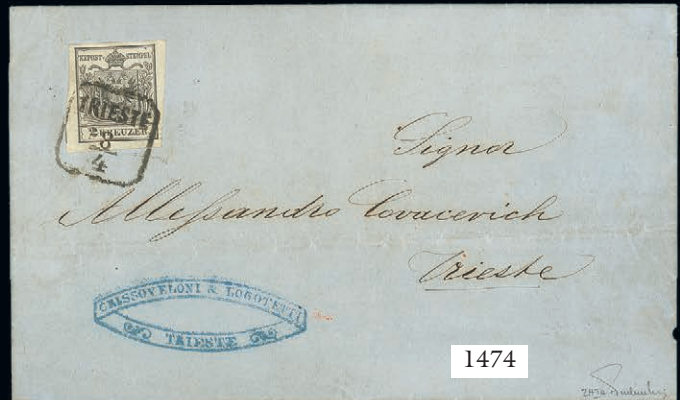 KKPOST-STEMPEL
TRIESTE
2 KREUZER
4
Signor
Allessandro Covacevich
Trieste
CRISSOVELONI & LOGOTETTI
TRIESTE
1474